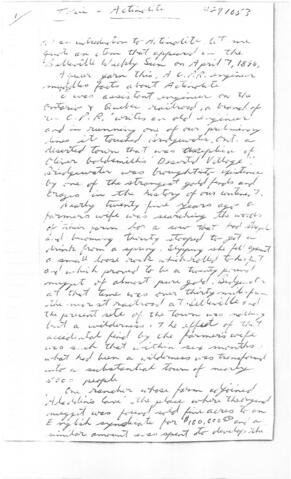 Tweed - Actinolite 4291053
1
As an introduction to Actinolite let me
quote an item that appeared in the
Belleville Weekly Sun on April 7, 1896,
A queer yarn this, A C.P.R. engineer
muddles facts about Actinolite
I was assistant engineer on the
Ontario & Quebec railroad, a branch of
the C.P.R. writes an old engineer
and in running one of our preliminary
lines it touched Bridgewater, Ont. a
deserted town that was the
Oliver Goldsmith's Deserted Village.
Bridgewater was brought into existence
by one of the strangest gold finds and
craze in the history of our century.
Nearly twenty five years ago a
farmer's wife was searching the woods
of their farm for a sow that had strayed
and becoming thirsty stooped to get a
drink from a spring. Slipping she felt
a small loose rock which rolled to
and which proved to be a twenty pound
nugget of almost pure gold. Bridgewater
at that time was over thirty miles from
the nearest railroad at Belleville and
the present site of the town was nothing
but a wilderness. The effect of that
accidental find by the farmer's wife
was such that within six months
what had been a wilderness was transformed
into a substantial town of nearly
5000 people
One rancher whose farm adjoined
Aladdin's Cave, the place where the
nugget was found sold five acres to an
English syndicate for $100,000 and a
similar amount was spent to develop the